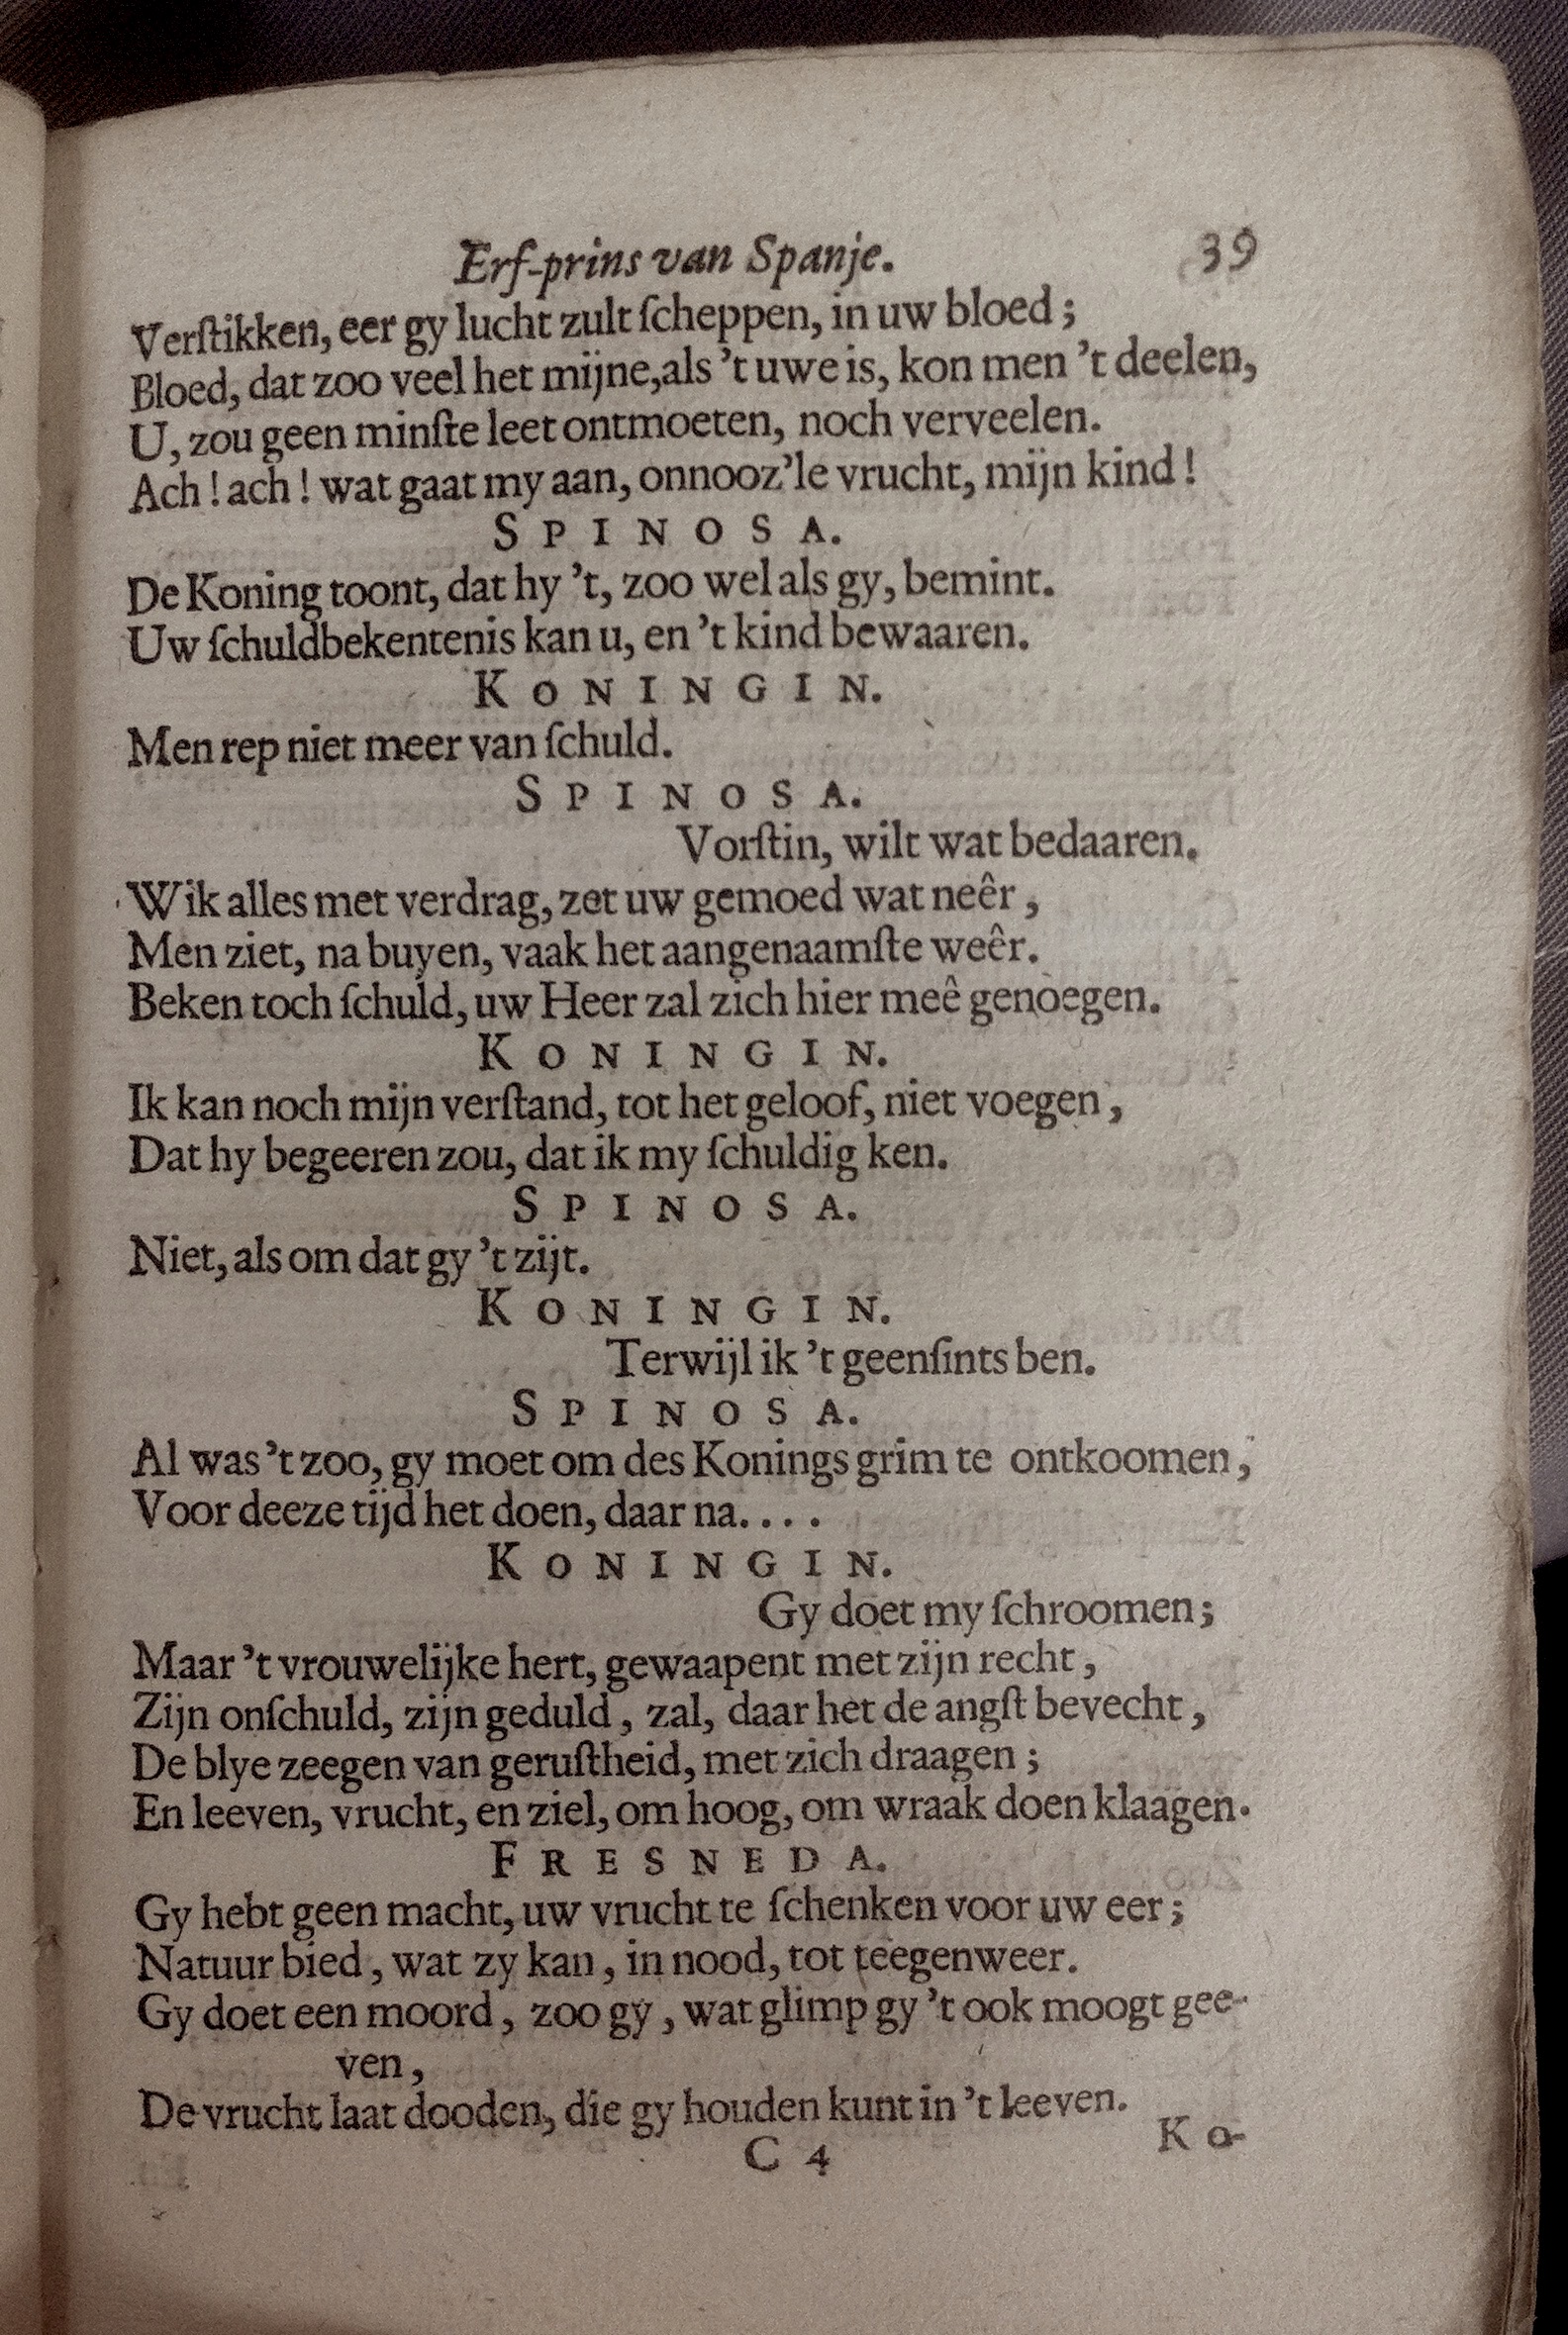 Erf-prins van Spanje. 39
Verſtikken, eer gy lucht zult ſcheppen, in uw bloed;
Bloed, dat zoo veel het mijne, als 't uwe is, kon men 't deelen,
U, zou geen minſte leet ontmoeten, noch verveelen.
Ach! ach! wat gaat my aan, onnooz'le vrucht, mijn kind!
SPINOSA.
De Koning toont, dat hy 't, zoo wel als gy, bemint.
Uw ſchuldbekentenis kan u, en 't kind bewaaren.
KONINGIN.
Men rep niet meer van ſchuld.
SPINOSA.
Vorſtin, wilt wat bedaaren.
Wik alles met verdrag, zet uw gemoed wat neêr,
Men ziet, na buyen, vaak het aangenaamſte weêr.
Beken toch ſchuld, uw Heer zal zich hier meê genoegen.
KONINGIN.
Ik kan noch mijn verſtand, tot het geloof, niet voegen,
Dat hy begeeren zou, dat ik my ſchuldig ken.
SPINOSA.
Niet, als om dat gy 't zijt.
KONINGIN.
Terwijl ik 't geenſints ben.
SPINOSA.
Al was 't zoo, gy moet om des Konings grim te ontkoomen,
Voor deeze tijd het doen, daar na....
KONINGIN.
Gy doet my ſchroomen;
Maar 't vrouwelijke hert, gewaapent met zijn recht,
Zijn onſchuld, zijn geduld, zal, daar het de angſt bevecht,
De blye zeegen van geruſtheid, met zich draagen;
En leeven, vrucht, en ziel, om hoog, om wraak doen klaagen.
FRESNEDA.
Gy hebt geen macht, uw vrucht te ſchenken voor uw eer;
Natuur bied, wat zy kan, in nood, tot teegenweer.
Gy doet een moord, zoo gy, wat glimp gy 't ook moogt gee-
ven,
De vrucht laat dooden, die gy houden kunt in 't leeven.
C 4 Ko-